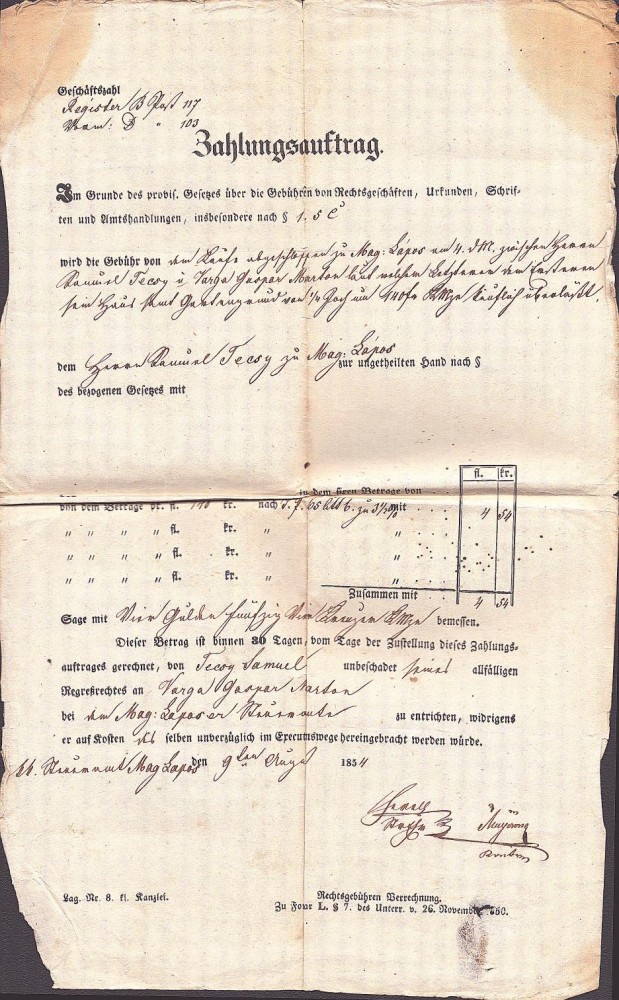 Geschäftszahl
Register B Post 117
Vorm: D " 103
Zahlungsauftrag.
Im Grunde des provis. Gesetzes über die Gebühren von Rechtsgeschäften, Urkunden, Schrif-
ten und Amtshandlungen, insbesondere nach § 1. 5 C
wird die Gebühr von dem Kaufe abgeschlossen zu Mag: Lápos am 4. d.M. zwischen Herrn
Samuel Tecsy u Varga Gaspar Marton laut welchem Letzterer dem Ersteren
sein Haus samt Gartengrund von 1/4 Joch um 140 fr CMze käuflich überlaßt.
dem Herrn Samuel Tecsy zu Mag: Lápos
zur ungetheilten Hand nach §
des bezogenen Gesetzes mit
fl. kr.
in dem Betrage von
von dem Betrage pr. fl. 140 kr. nach T. P. 65 zu 3½% mit 4 54
" " " " fl. kr. " "
" " " " fl. kr. " "
" " " " fl. kr. " "
Zusammen mit 4 54
Sage mit Vier Gulden fünfzig Vier Kreuzer CMze bemessen.
Dieser Betrag ist binnen 30 Tagen, vom Tage der Zustellung dieses Zahlungs-
auftrages gerechnet, von Tecsy Samuel unbeschadet seines allfälligen
Regreßrechtes an Varga Gaspar Marton
bei dem Mag: Laposer Steueramte zu entrichten, widrigens
er auf Kosten des selben unverzüglich im Executnswege hereingebracht werden würde.
kk. Steueramt Mag Lapos den 9ten Augt 1854
Lag. Nr. 8. kl. Kanzlei.
Rechtsgebühren Verrechnung.
Zu Form L. § 7. des Unterr. v. 26. November 850.